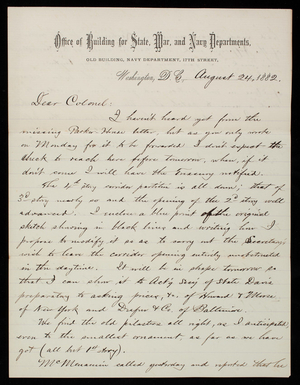 Office of Building for State, War, and Navy Departments,
OLD BUILDING, NAVY DEPARTMENT, 17TH STREET,
Washington, D.C. August 24, 1882.
Dear Colonel:
I haven't heard yet from the
missing Parker House letter, but as you only wrote
on Monday for it to be forwarded I don't expect the
check to reach here before tomorrow, when, if it
don't come I will have the Treasury notified.
The 4th story corridor partition is all down; that of
3d story nearly so and the opening of the 2d story well
advanced. I inclose a blue print of the original
sketch showing in black lines and writing how I
propose to modify it so as to carry out the Secretary's
wish to leave the corridor opening entirely unobstructed
in the daytime. It will be in shape tomorrow so
that I can show it to Act'g Secy of State Davis
preparatory to asking prices, &c. of Howard & Morse
of New York and Draper & Co. of Baltimore.
We find the old pilasters all right, as I anticipated
even to the smallest ornament, as far as we have
got (all but 1st story).
Mr McMenamin called yesterday and reported that he